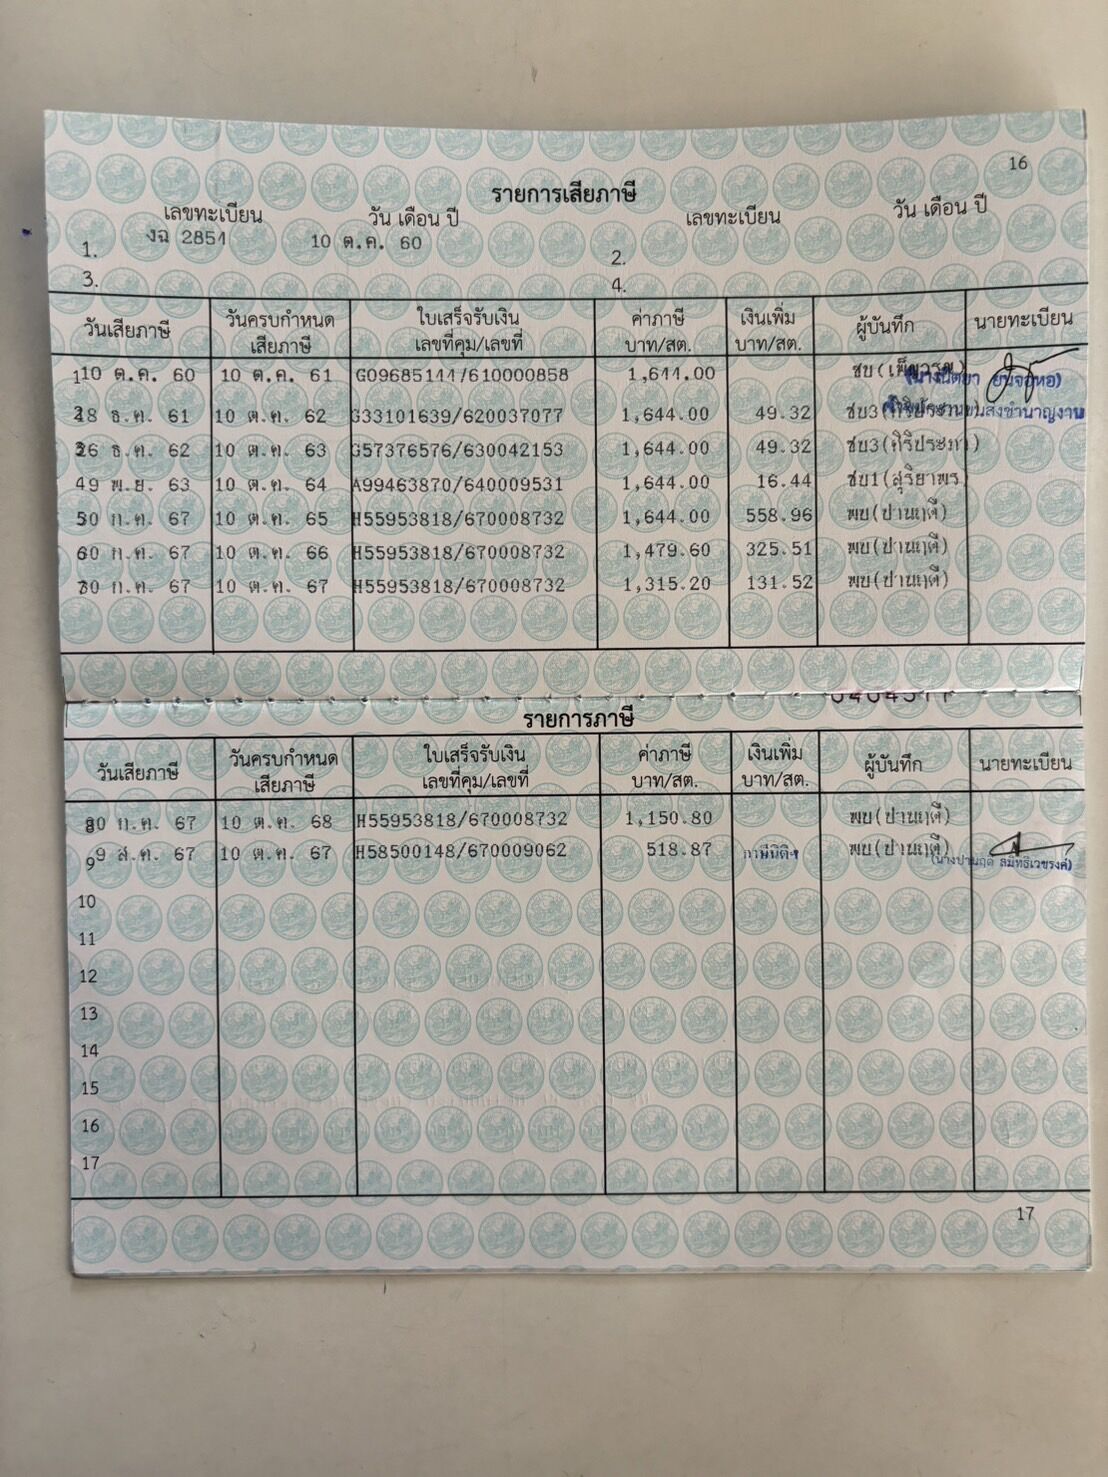 16
รายการเสียภาษี
เลขทะเบียน วัน เดือน ปี เลขทะเบียน วัน เดือน ปี
1. งฉ 2851 10 ต.ค. 60 2.
3. 4.
วันเสียภาษี วันครบกำหนดเสียภาษี ใบเสร็จรับเงิน เลขที่คุม/เลขที่ ค่าภาษี บาท/สต. เงินเพิ่ม บาท/สต. ผู้บันทึก นายทะเบียน
1 10 ต.ค. 60 10 ต.ค. 61 G09685144/610000858 1,644.00 ชบ(เพ็ญวรรณ)
28 ธ.ค. 61 10 ต.ค. 62 G33101639/620037077 1,644.00 49.32 ชบ3(ศิริประภา)
26 ธ.ค. 62 10 ต.ค. 63 G57376576/630042153 1,644.00 49.32 ชบ3(ศิริประภา)
49 พ.ย. 63 10 ต.ค. 64 A99463870/640009531 1,644.00 16.44 ชบ1(สุริยาพร)
30 ก.ค. 67 10 ต.ค. 65 H55953818/670008732 1,644.00 558.96 พบ(ปานฤดี)
30 ก.ค. 67 10 ต.ค. 66 H55953818/670008732 1,479.60 325.51 พบ(ปานฤดี)
30 ก.ค. 67 10 ต.ค. 67 H55953818/670008732 1,315.20 131.52 พบ(ปานฤดี)
รายการภาษี
วันเสียภาษี วันครบกำหนดเสียภาษี ใบเสร็จรับเงิน เลขที่คุม/เลขที่ ค่าภาษี บาท/สต. เงินเพิ่ม บาท/สต. ผู้บันทึก นายทะเบียน
30 ก.ค. 67 10 ต.ค. 68 H55953818/670008732 1,150.80 พบ(ปานฤดี)
9 9 ส.ค. 67 10 ต.ค. 67 H58500148/670009062 518.87 พบ(ปานฤดี)
10
11
12
13
14
15
16
17
17